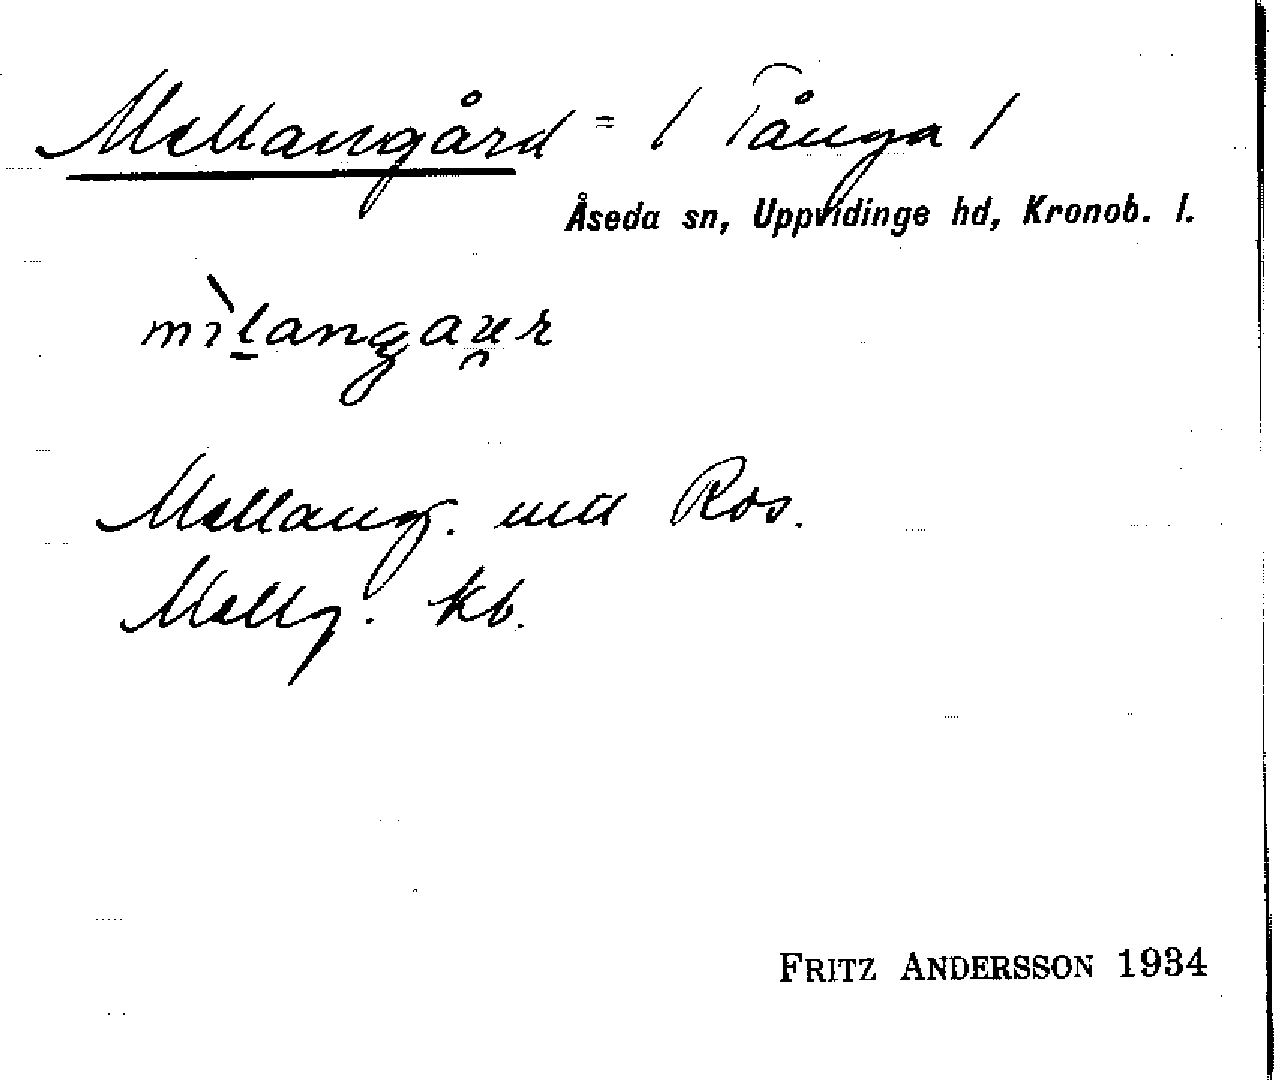 Mellangård = / Tånga /
Åseda sn, Uppvidinge hd, Kronob. l.
Mellang. Ros.
Mellg. kb.
FRITZ ANDERSSON 1934